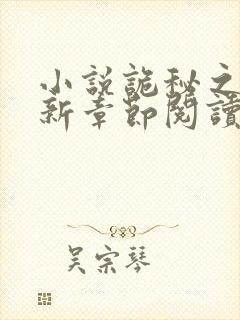 小説詭秘之
新章節閱讀
吴宗琴